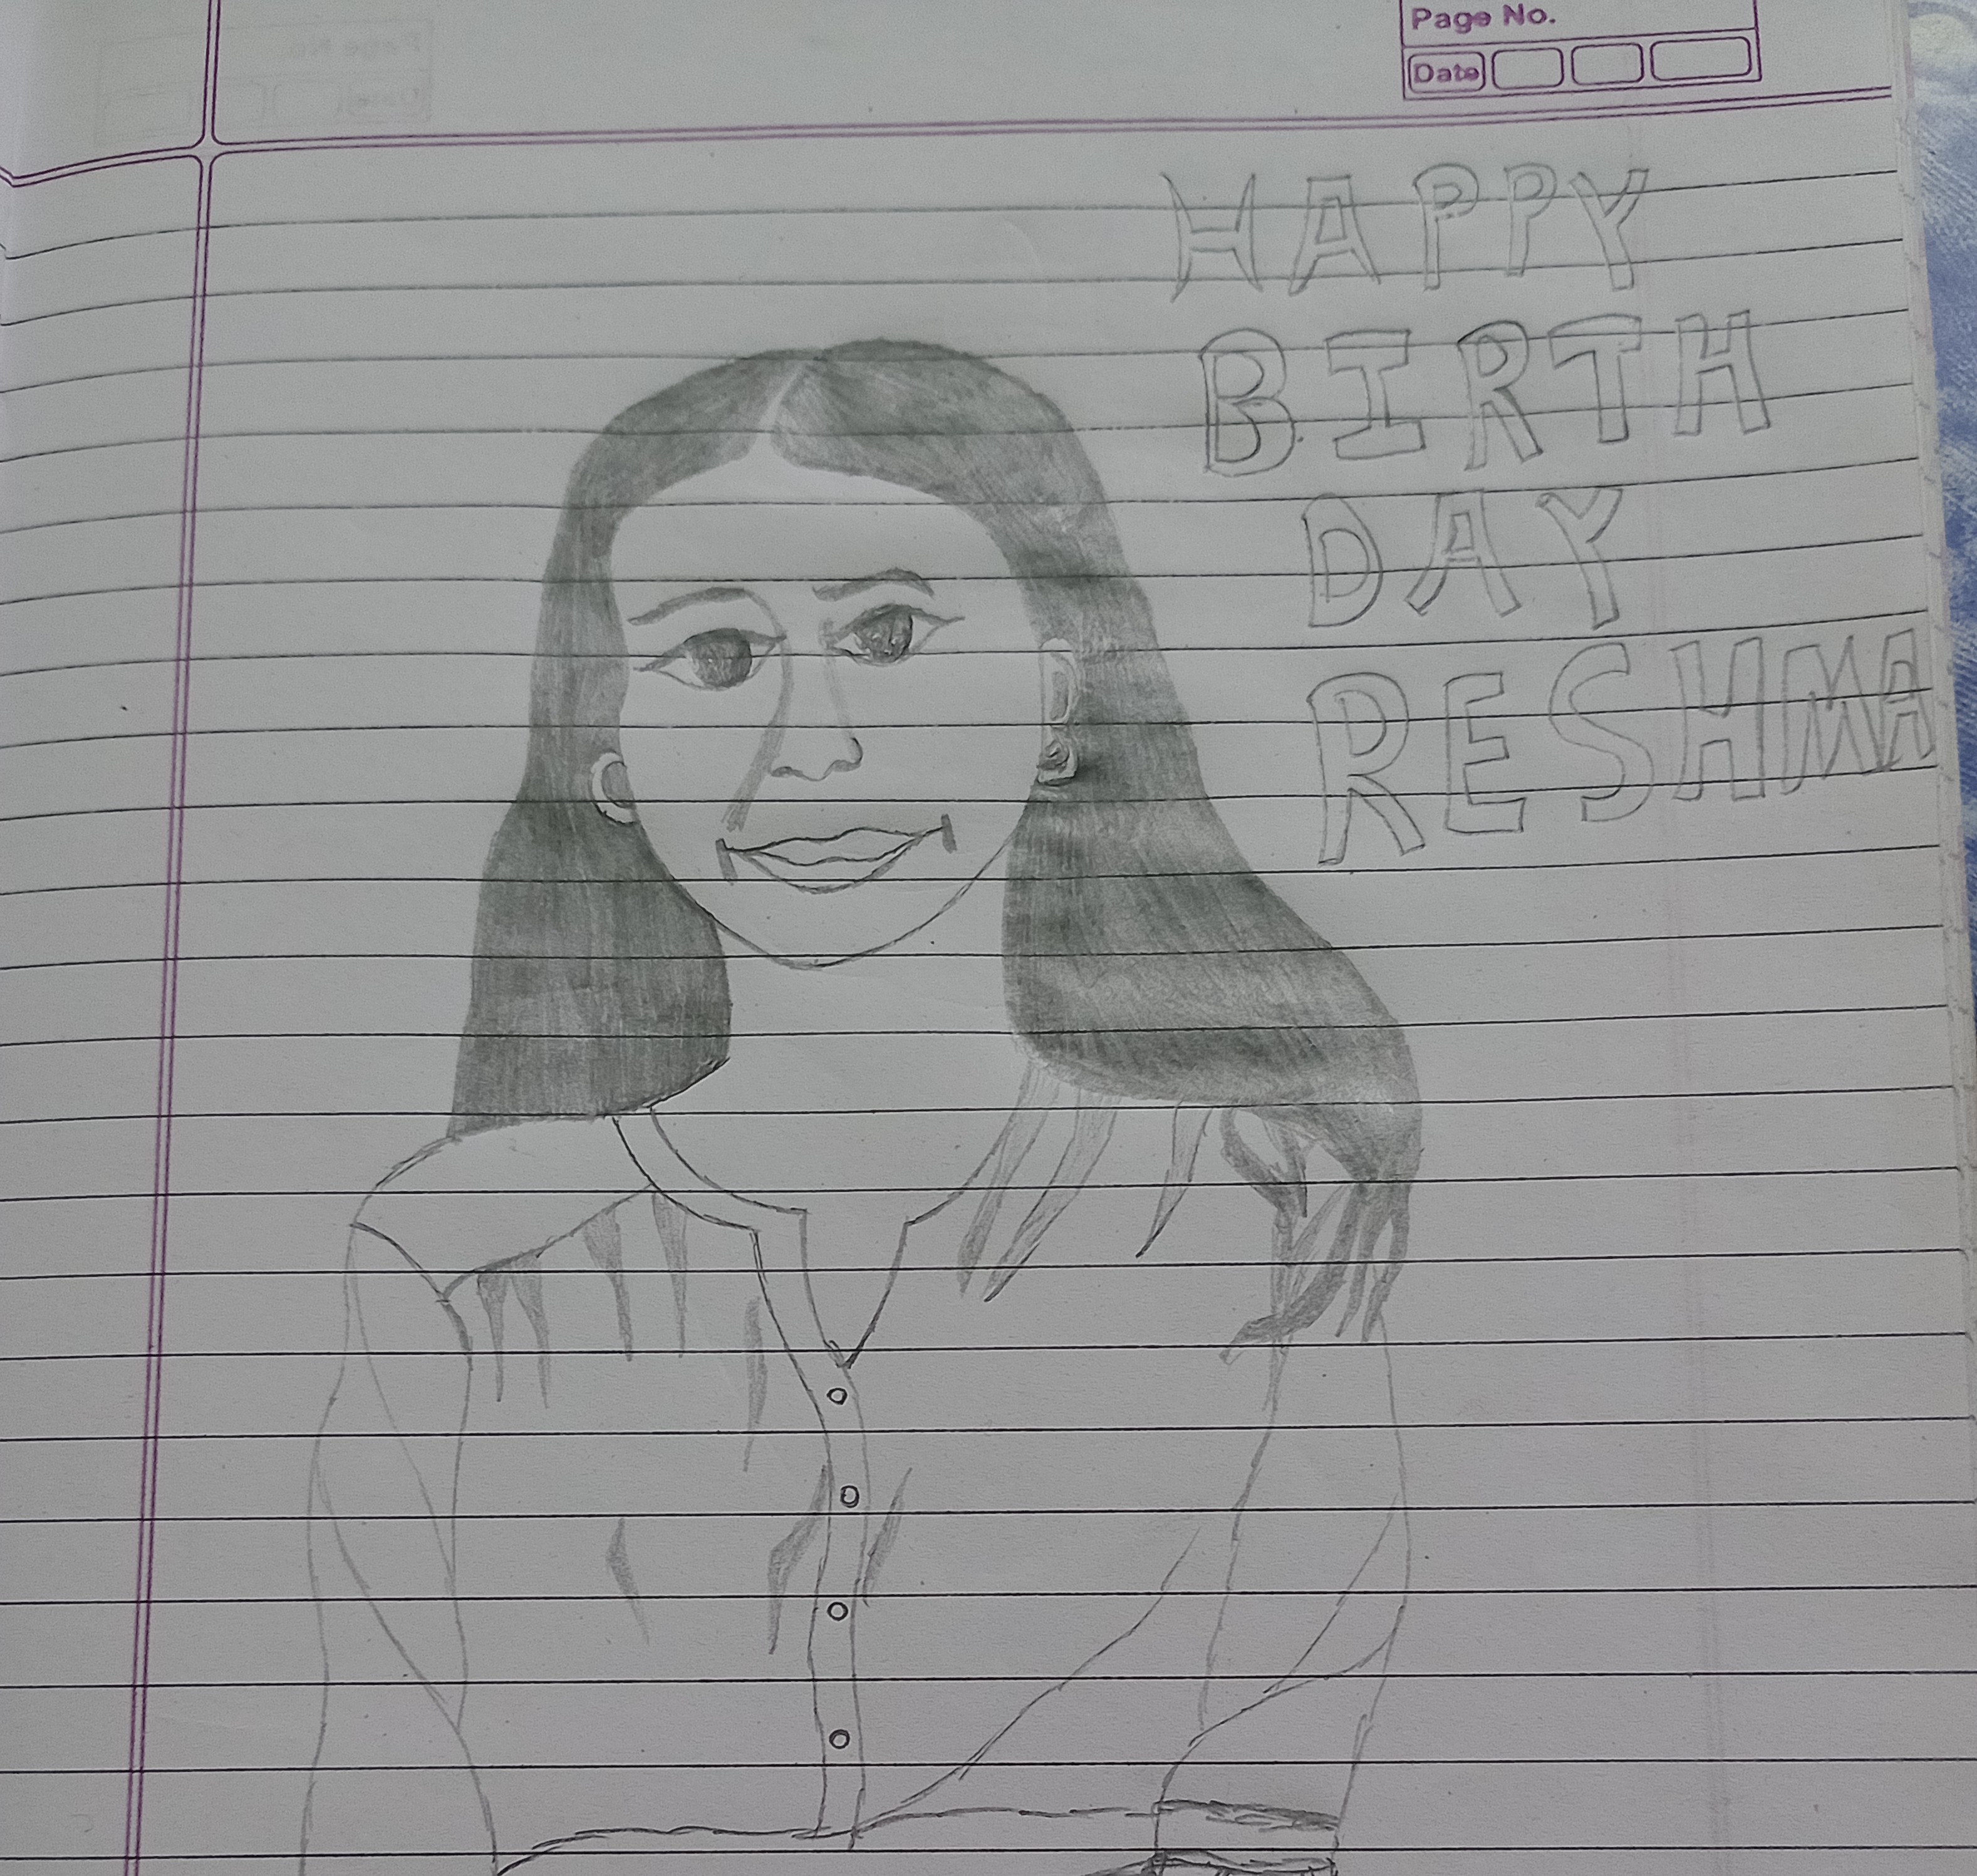 Page No.
Date
HAPPY
BIRTH
DAY
RESHMA